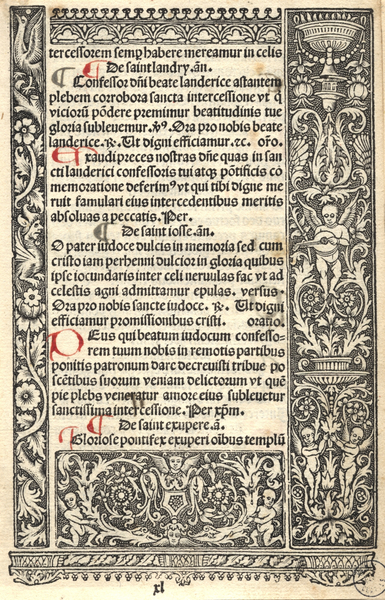 tercessorem semp habere mereamur in celis
De saint landry. añ.
Confessor dñi beate landerice astantem
plebem corrobora sancta intercessione vt q
viciorũ põdere premimur beatitudinis tue
gloria subleuemur. ℣. Ora pro nobis beate
landerice. ℟. Ut digni efficiamur. ⁊c. oro.
Exaudi preces nostras dñe quas in san
cti landerici confessoris tui atqꝫ põtificis cõ
memoratione deferimꝰ vt qui tibi digne me
ruit famulari eius intercedentibus meritis
absoluas a peccatis. Per.
De saint iosse. añ.
O pater iudoce dulcis in memoria sed cum
cristo iam perhenni dulcior in gloria quibus
ipse iocundaris inter celi neruulas fac vt ad
celestis agni admittamur epulas. versus.
Ora pro nobis sancte iudoce. ℟. Ut digni
efficiamur promissionibus cristi. oratio.
Deus qui beatum iudocum confesso
rem tuum nobis in remotis partibus
põnitis patronum dare decreuisti tribue po
scẽtibus suorum veniam delictorum vt quẽ
pie plebs veneratur amore eius subleuetur
sanctissima intercessione. Per xp̃m.
De saint exupere. a.
Gloriose pontifex exuperi oĩbus templũ
xl